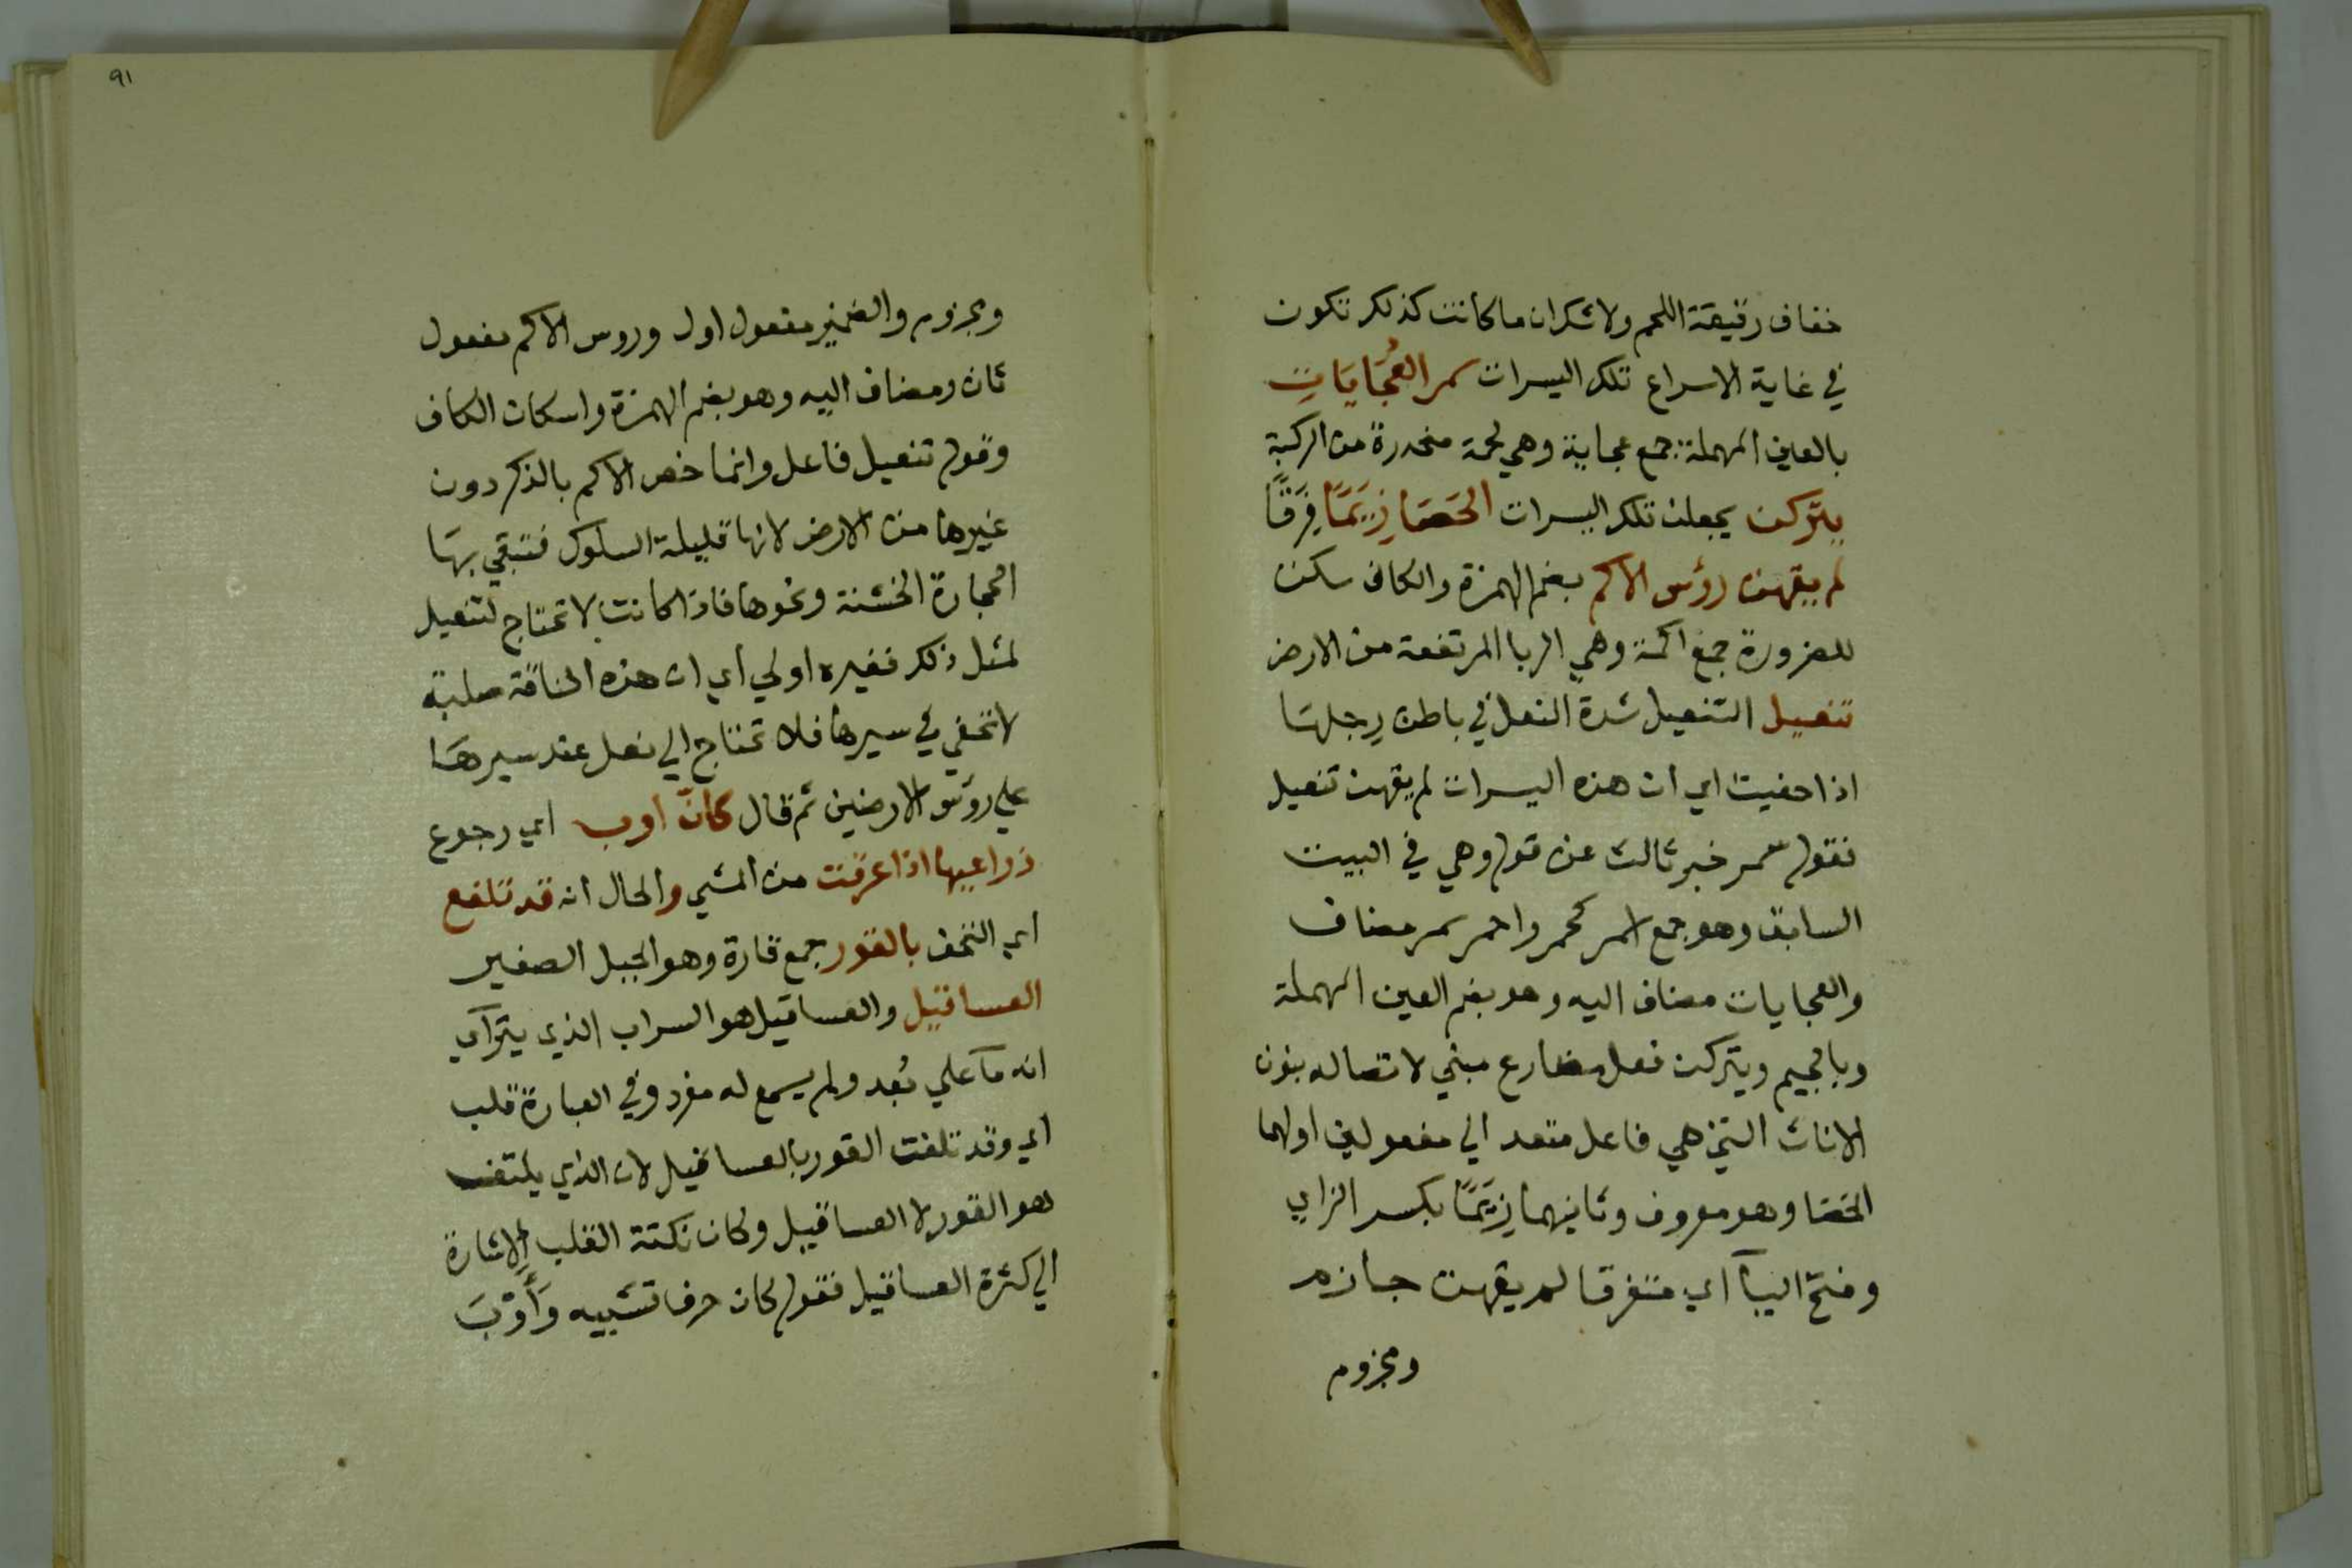 خفاف رقيقة اللحم ولا شك ان ما كانت كذلك تكون
في غاية الاسراع تلك اليسرات سمر العُجَايَاتِ
بالعين المهملة جمع عجاية وهي لحمة منحدرة من الركبة
يتركن يجعلن تلك اليسرات الحَصَا زِيَمًا فِرَقًا
لم يقهن رؤس الاكم بضم الهمزة والكاف سكن
للضرورة جمع اكمة وهي الربا المرتفعة من الارض
تنعيل التنعيل شدة النعل في باطن رِجلهَا
اذا حفيت اي ان هذه اليسرات لم يقهن تنعيل
فقوله سمر خبر ثالث عن قوله وهي في البيت
السابق وهو جمع اسمر كحمر واحمر سمر مضاف
والعجايات مضاف اليه وهو بضم العين المهملة
وبالجيم ويتركن فعل مضارع مبني لاتصاله بنون
الاناث التي هي فاعل متعد الي مفعولين اولهما
الحصا وهو معروف وثانيهما زِيَمًا بكسر الزاي
وفتح اليآ اي متفرقا لم يقهن جازم
ومجزوم
٩١
ومجزوم والضمير مفعول اول وروس الاكم مفعول
ثان ومضاف اليه وهو بضم الهمزة واسكان الكاف
وقوله تنعيل فاعل وانما خص الاكم بالذكر دون
غيرها من الارض لانها قليلة السلوك فتبقي بهَا
الحجارة الخشنة ونحوها فاذا كانت لا تحتاج لتنعيل
لمثل ذلك فغيره اولي اي ان هذه الناقة صلبة
لا تحفي في سيرها فلا تحتاج الي نعل عند سيرهَا
علي روَس الارضين ثم قال كانّ اوب اي رجوع
ذراعيها اذا عرقت من المشي والحال انه قد تلفع
اي التحف بالقور جمع قارة وهو الجبل الصغير
العساقيل والعساقيل هو السراب الذي يترآي
انه مآ علي بُعد ولم يسمع له مفرد وفي العبارة قلب
اي وقد تلفت القور بالعساقيل لان الذي يلتف
هو القور لا العساقيل وكان نكتة القلب اِلاشارة
الي كثرة العساقيل فقوله كان حرف تشبيه وَأَوْبَ